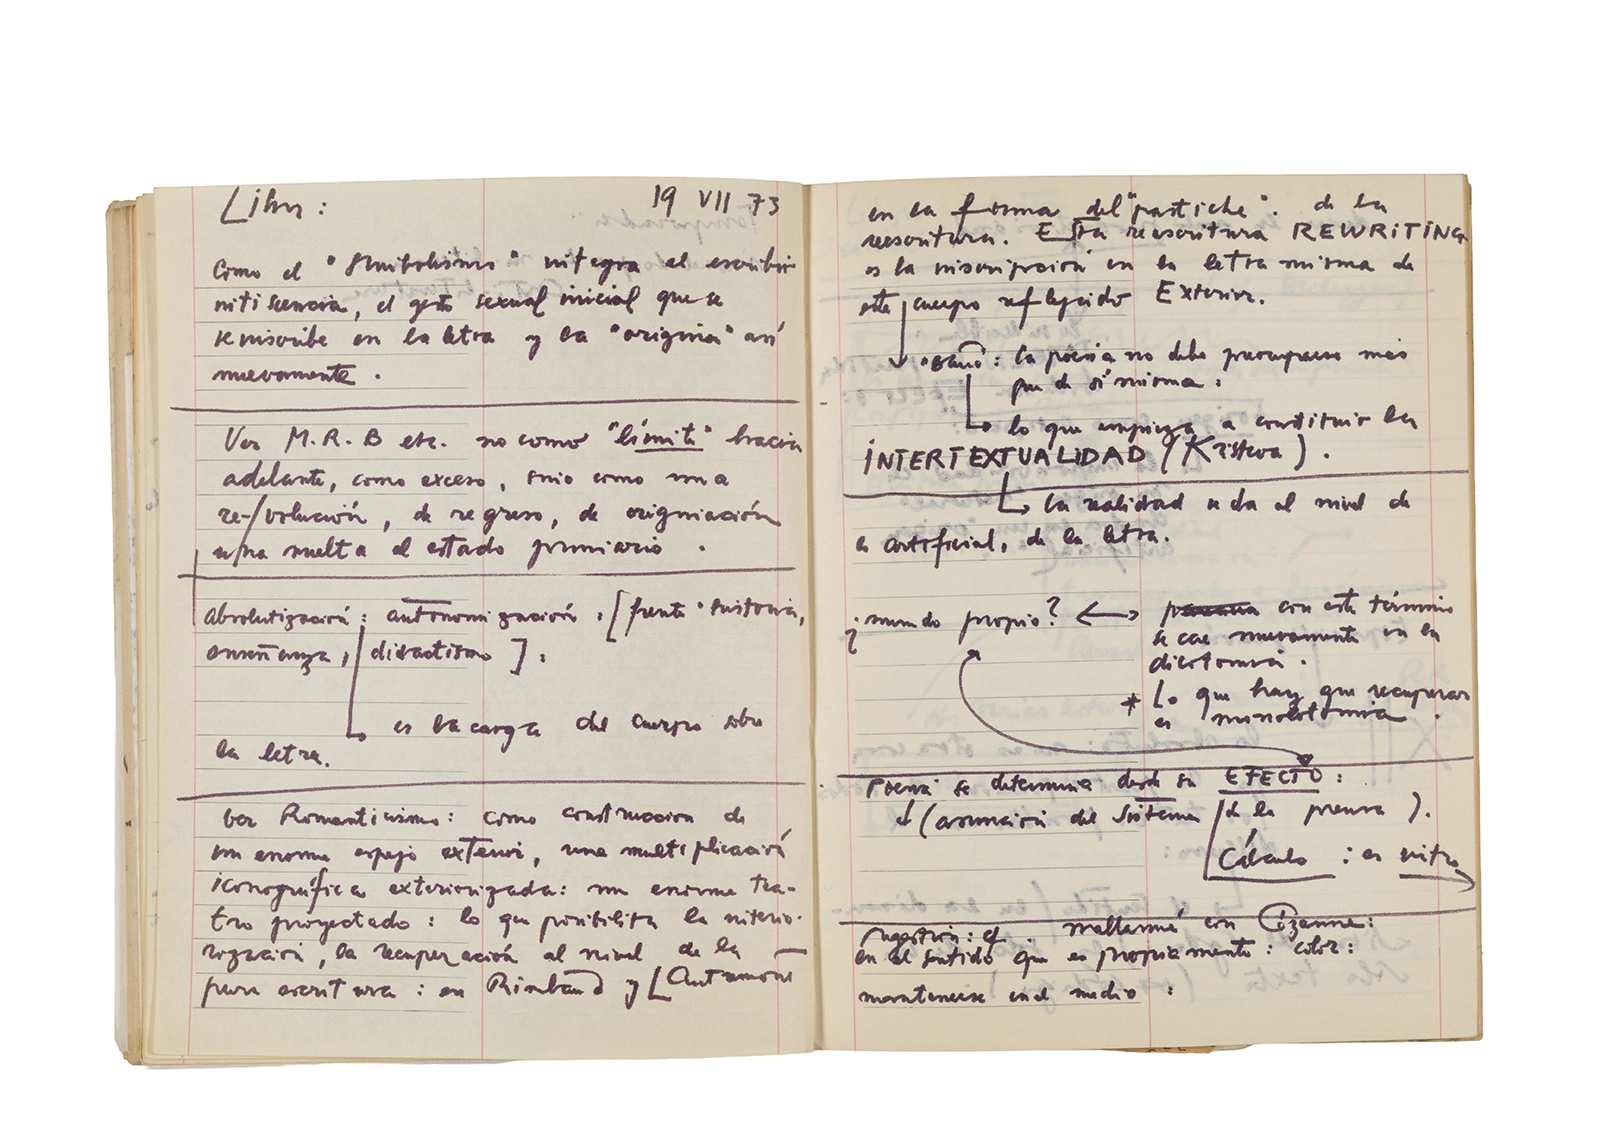 Libro:
19 VII 73
Como el "Simbolismo" integra el escribir
, el gesto sexual inicial que se
reinscribe en la letra y la "origina" así
nuevamente.
Ver M.R.B etc. no como "límite" hacia
adelante, como exceso, sino como una
re-/volución, de regreso, de originación
una vuelta al estado primario.
Absolutización: autonomización, [frente historia,
enseñanza, didactismo].
es la carga del cuerpo sobre
la letra.
Ver Romanticismo: como construccion de
un enorme espejo exterior, una multiplicación
iconográfica exteriorizada: un enorme tea-
tro proyectado: lo que posibilita la interio-
rización, la recuperación al nivel de la
pura escritura: en Rimbaud y [Lautreamont
en la forma del "pastiche". de la
reescritura. Esta reescritura REWRITING
es la inscripción en la letra misma de
este cuerpo reflejado Exterior.
: la poesía no debe preocuparse más
que de sí misma:
lo que empieza a constituir la
INTERTEXTUALIDAD (Kristeva).
la realidad se da al nivel de
lo artificial, de la letra.
¿mundo propio? ↔ con este término
se cae nuevamente en la
dicotomía.
* Lo que hay que recuperar
es monolotomia.
Poesía se determina desde su EFECTO:
(asunción del Sistema / de la prensa).
Cálculo: es
sugestión: cf. mallarmé con Cézanne:
en el sentido que es propiamente: color:
mantenerse en el medio: